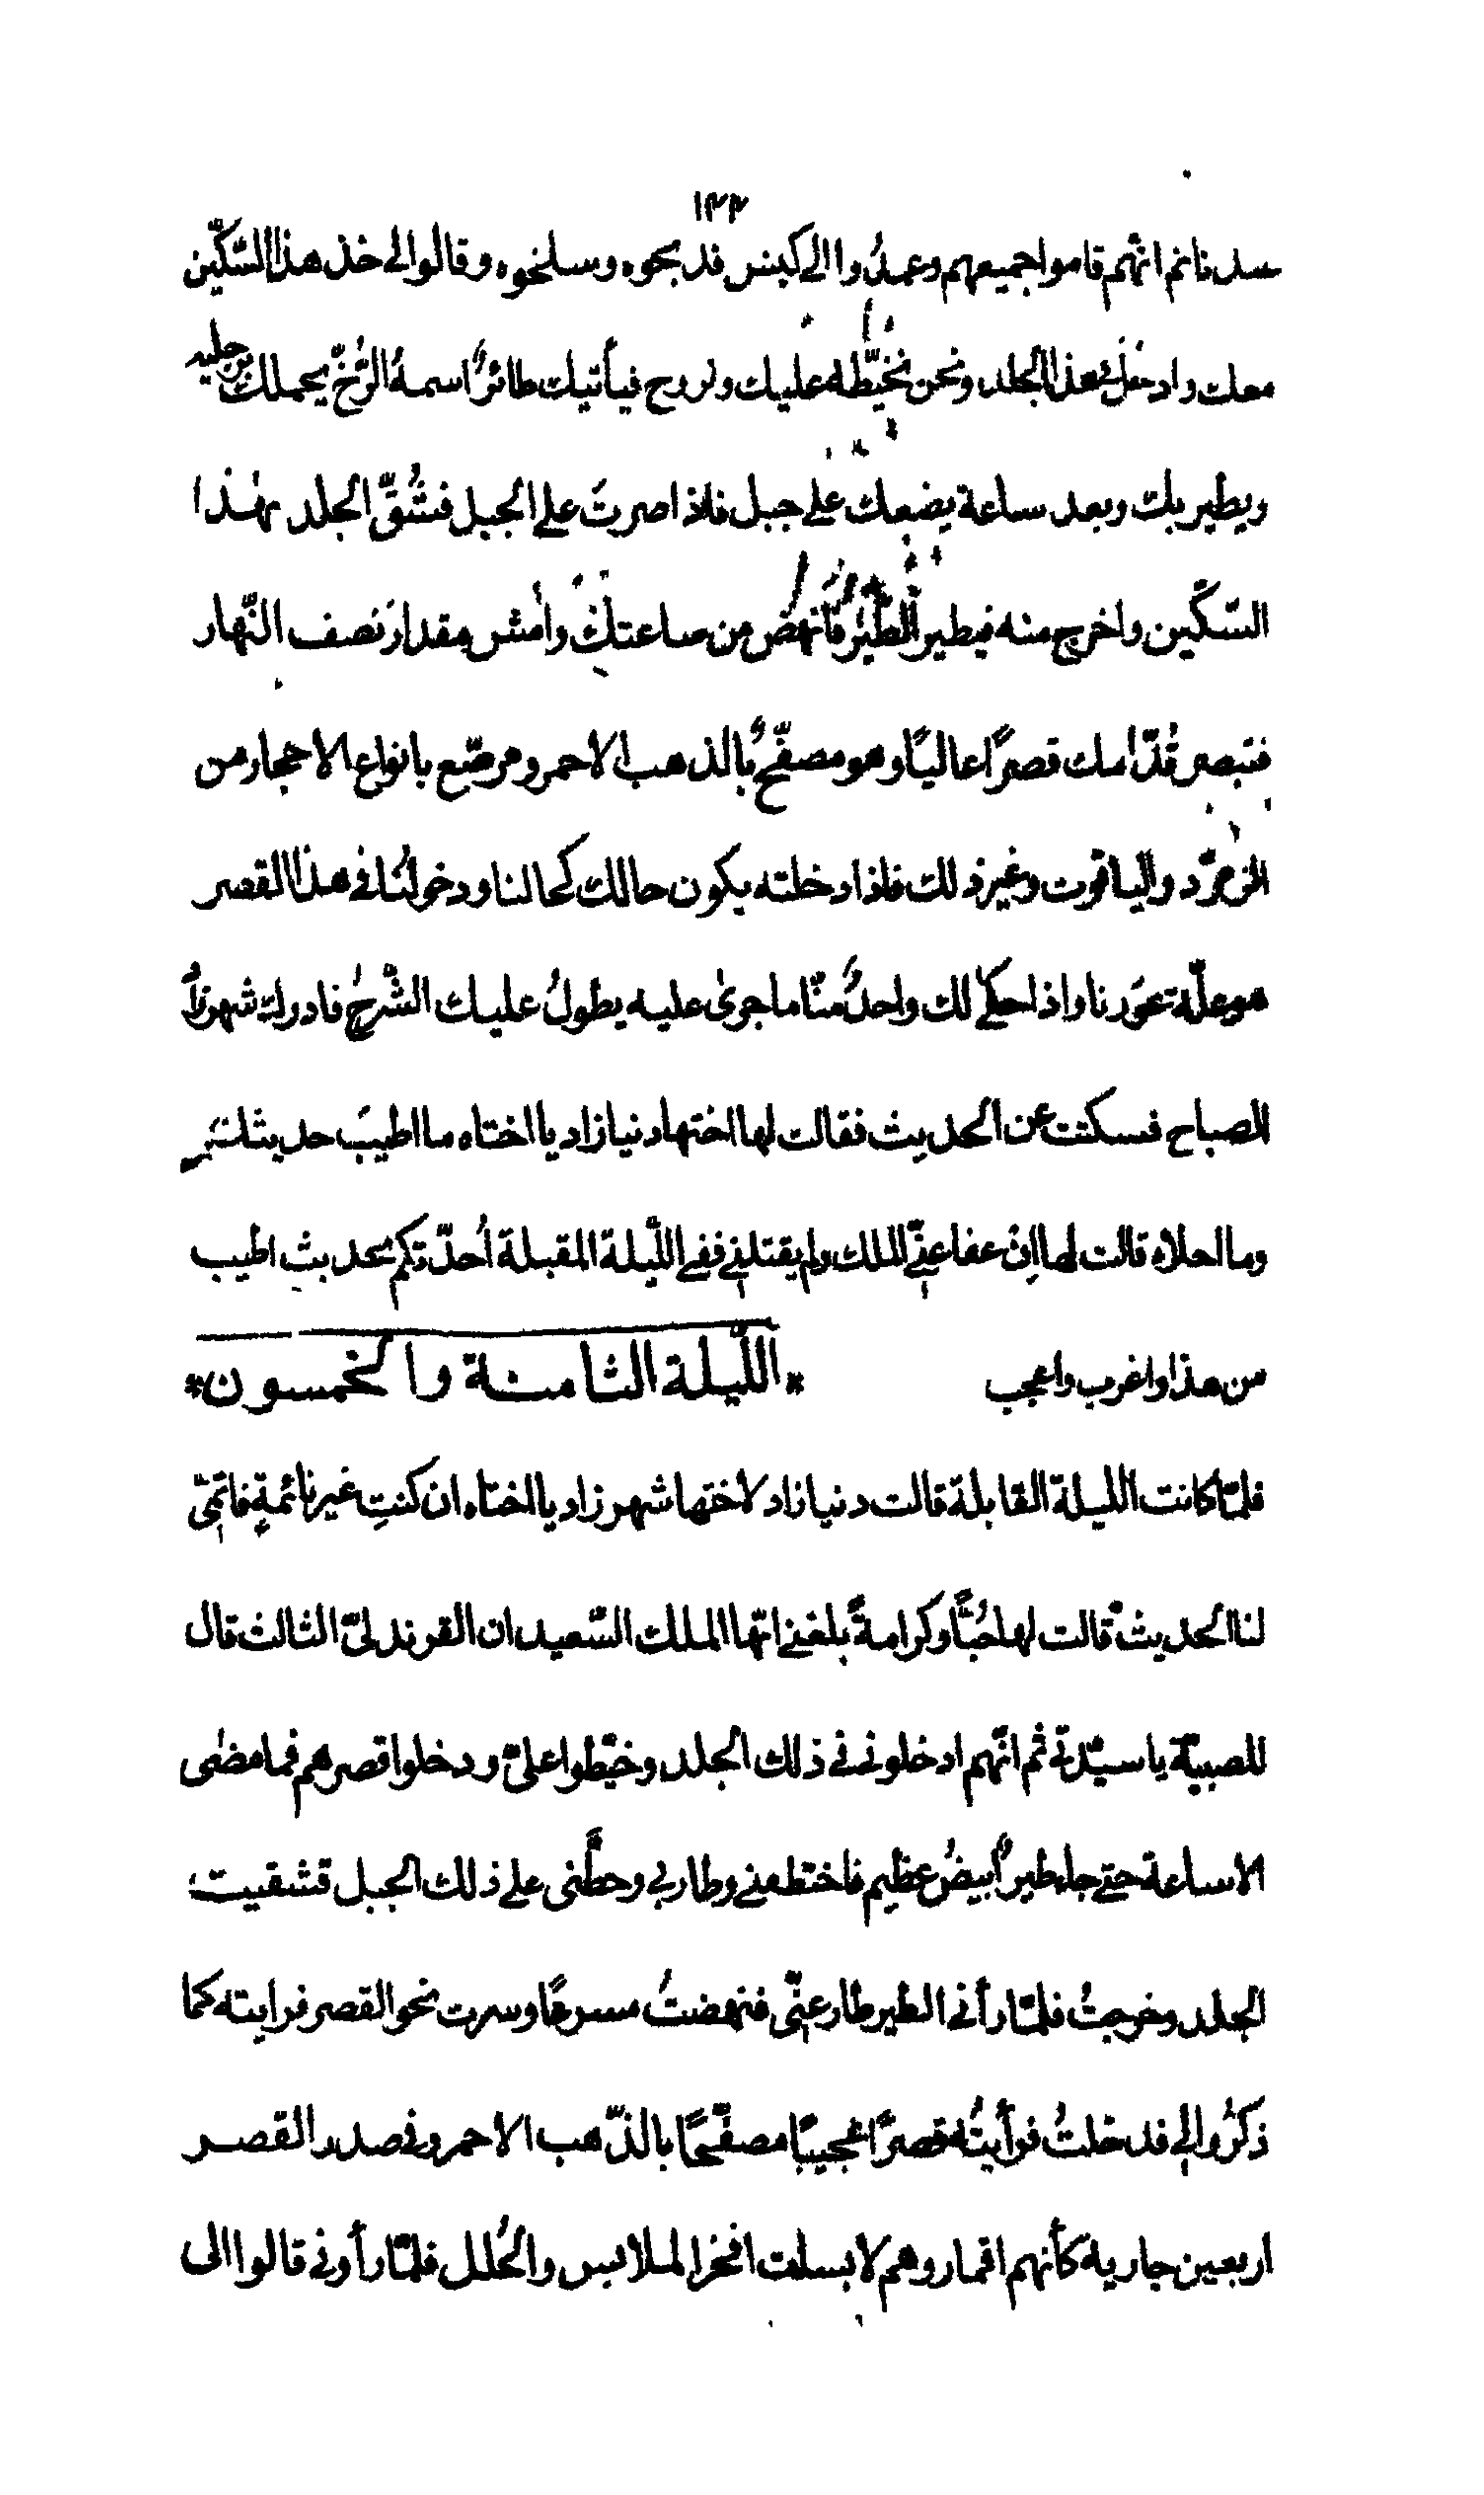 ١٣٣
سدنا ثم انهم قاموا جميعهم وعمدُوا الي كبش فذبحوه وسلخوه وقالوا لي خذ هذا السّكّين
معك وادخل هذا الجلد ونحن نُخيّطه عليك ونروح فيأتيك طائرٌ اسمهُ الرُّخّ يحملك برجليه
ويطير بك وبعد ساعة يضعك علي جبل فاذا صرتَ علي الجبل فشُقَّ الجلد بهٰذا
السّكّين واخرج منه فيطير الطَّيرُ فانهض من ساعتك وامش مقدار نصف النَّهار
فتبصر قدّامك قصرًا عاليًا وهو مصفّحٌ بالذهب الاحمر ومرصّع بانواع الاحجار من
الزمرّد والياقوت وغير ذلك فاذا دخلته يكون حالك كحالنا ودخولُنا في هذا القصر
هو علّة عوَرنا واذا حكي لك واحدٌ منّا ما جري عليه يطولُ عليك الشّرحُ فادرك شهرزادَ
الصباح فسكتت عن الحديث فقالت لها اختها دنيازاد يا اختاه ما اطيبَ حديثك
وما احلاه قالت لها اِن عفا عنّي الملك ولم يقتلني ففي اللّيلة المقبلة اُحدّثكم بحديث اطيب
من هذا واغرب واعجب * اللّيلة الثامنة والخمسون *
فلمّا كانت الليلة القابلة قالت دنيازاد لاختها شهرزاد يا اختاه ان كنتِ غير نائمةٍ فاتمّي
لنا الحديث قالت لها حُبًّا وكرامةً بلغني ايّها الملك السّعيد ان القرندليّ الثالث قال
للصبيّة يا سيّدتي ثم انّهم ادخلوني في ذلك الجلد وخيّطوا عليّ ودخلوا قصرهم فما مضى
الا ساعة حتي جاء طيرٌ ابيضُ عظيم فاختطفني وطار بي وحطَّني علي ذلك الجبل فشقيت
الجلد وخرجتُ فلمّا رأني الطير طار عنّي فنهضتُ مسرعًا وسرت نحو القصر فرايته كما
ذكرُوا لي فدخلتُ فرأيتُه قصرًا عجيبًا مصفّحًا بالذّهب الاحمر وفي صدر القصر
اربعين جارية كأنهم اقمار وهم لابسات افخر الملابس والحُلل فلمّا رأوني قالوا الي